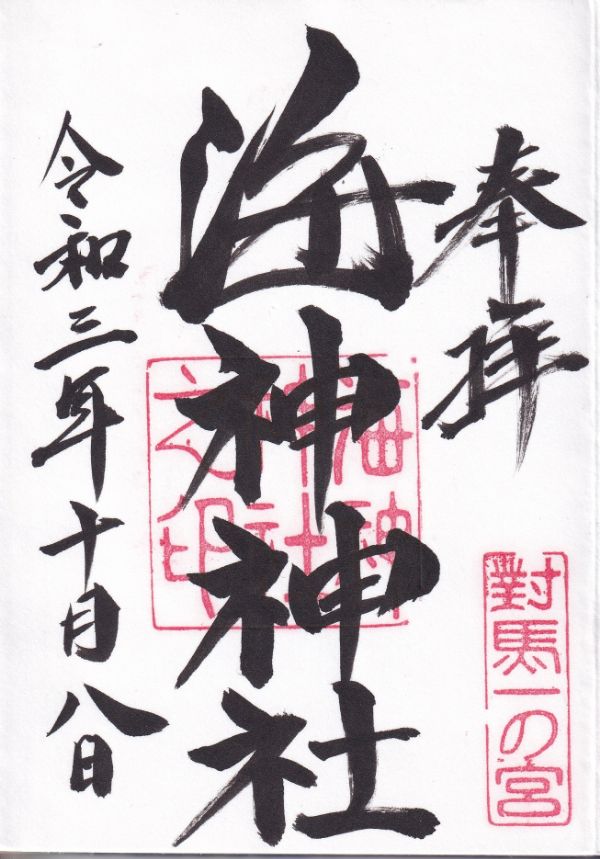 奉拝
對馬一の宮
海神神社
海神
神社
之印
令和三年十月八日